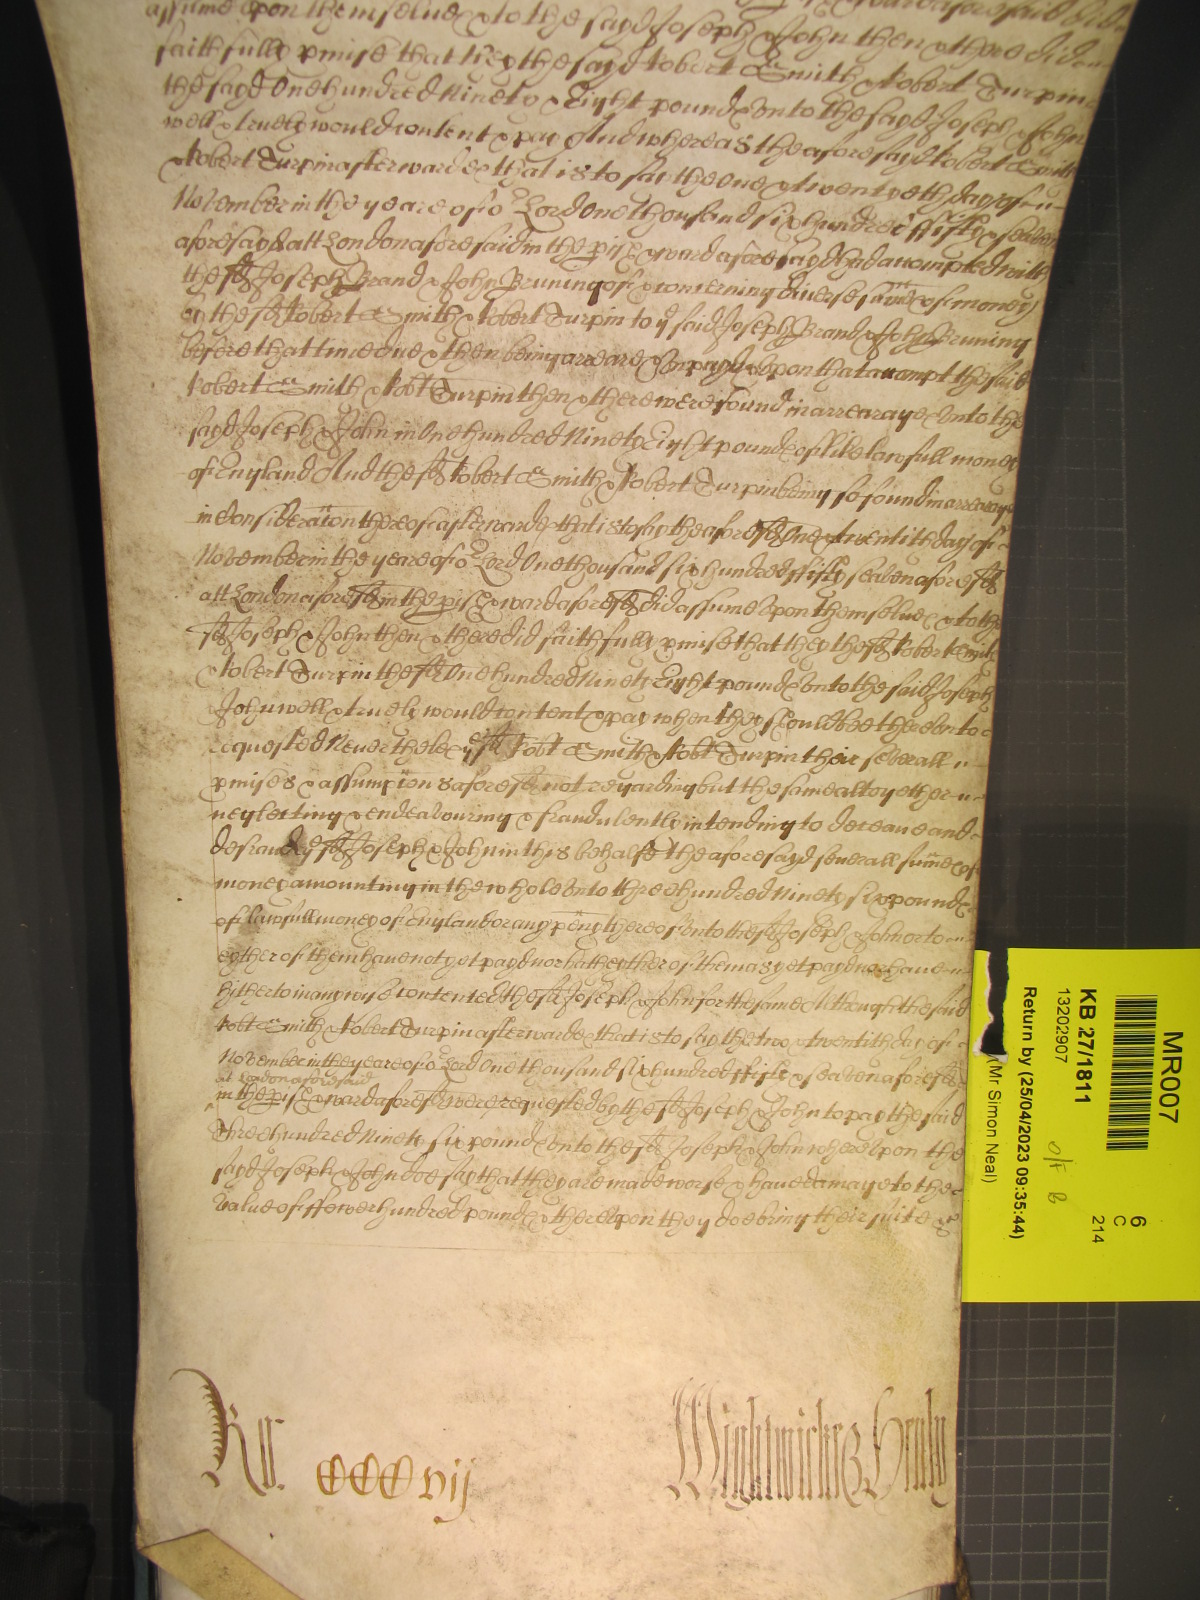 assume upon themselves & to the sayd Joseph & John then & there did
faithfully pmise that they the sayd Robert Smith & Robert Turpin
the sayd One hundred Ninety & Eight pounds unto the sayd Joseph & John
well & truely would content & pay And whereas the aforesayd Robert Smith
& Robert Turpin afterwards that is to say the one & twentyeth day of
November in the yeare of or Lord One thousand six hundred fifty & seaven
aforesayd att London aforesaid in the pish & ward aforesayd had accompted with
the sd Joseph Brand & John Bruning of & concerning diverse sumes of money
by the sd Robert Smith & Robert Turpin to ye said Joseph Brand & John Bruning
before that time due & then being arreare & unpayd & upon that accompt the said
Robert Smith & Robt Turpin then & there were found in arrearage unto the
sayd Joseph & John in One hundred Ninety Eight pounds of like lawfull money
of England And the sd Robert Smith & Robert Turpin being so found in arrearage
in Consideration thereof afterwards that is to say the aforesd One & twentith day of
November in the yeare of or Lord One thousand six hundred fifty seaven aforesd
att London aforesd in the pish & ward aforesd did assume upon themselves & to the
sd Joseph & John then & there did faithfully pmise that they the sd Robert Smith
& Robert Turpin the sd One hundred Ninety Eight pounds unto the said Joseph
John well & truely would content & pay when they should be thereunto
requested Neverthelesse ye sd Robt Smith & Robt Turpin their severall
pmises & assumpcions aforesd not regarding but the same altogether
neglecting & endeavouring & fraudulently intending to deceave and
defraud ye sd Joseph & John in this behalfe the aforesayd severall sumes of
money amounting in the whole unto three hundred Ninety six pounds
of lawfull money of England or any peny thereof unto the sd Joseph & John or to
eyther of them have not yet payd nor hath eyther of them as yet payd nor have
hitherto in any wise contented the sd Joseph & John for the same Although the said
Robt Smith & Robert Turpin afterwards that is to say the two & twentith day of
November in the yeare of or Lord One thousand six hundred fifty & seaven aforesd
at London aforesaid
in the pish & ward aforesd were requested by the sd Joseph & John to pay the said
Three hundred Ninety six pounds unto the sd Joseph & John whereupon the
sayd Joseph & John doe say that they are made worse & have damage to the
value of ffower hundred pounds & thereupon they doe bring their suite &c
Ro. CCCvij
Wightwicke & Henly
MR007
6
C
214
KB 27/1811
13202907
O/F B
Return by (25/04/2023 09:35:44)
(Mr Simon Neal)